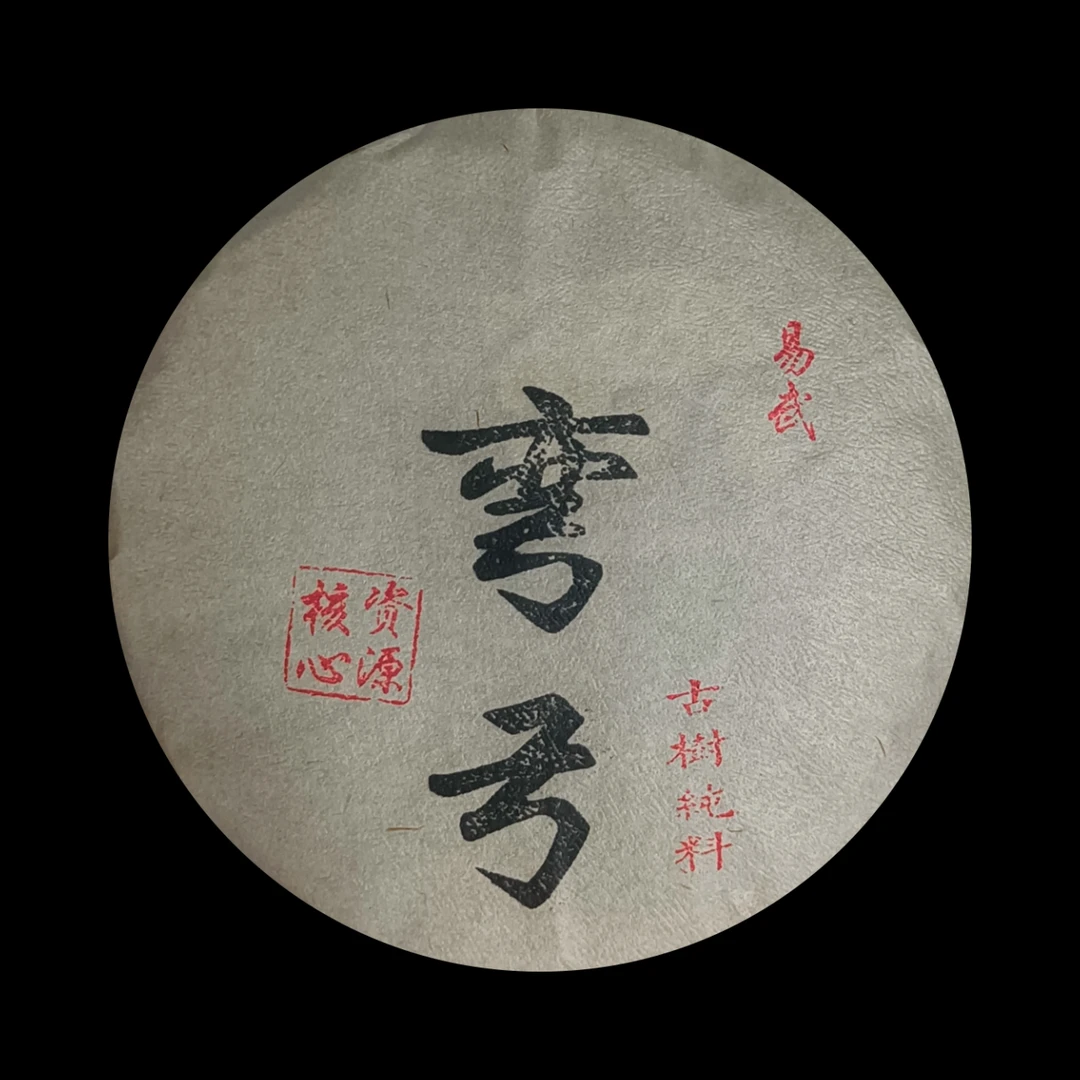 易武
古樹純料
弯弓
资源
核心